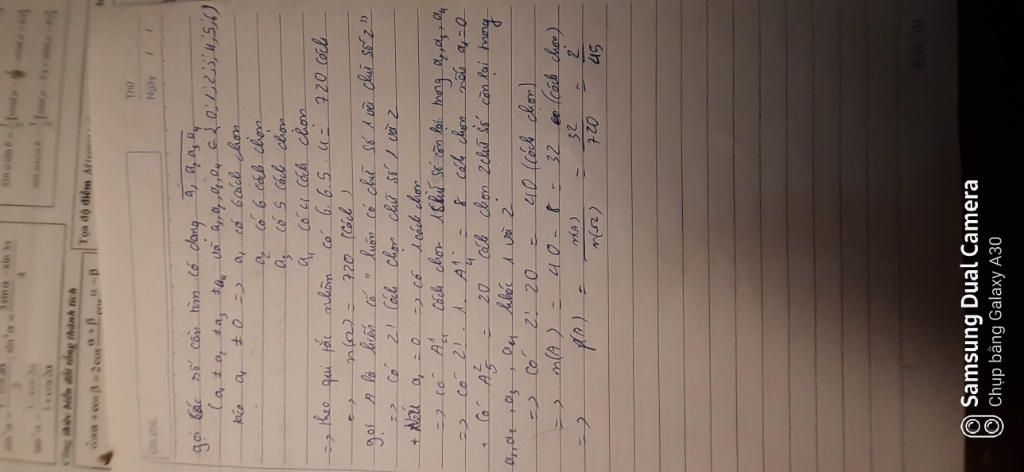 Thứ
Ngày / /
gọi các số cần tìm có dạng a₁ a₂ a₃ a₄
(a₁ ≠ a₂ ≠ a₃ ≠ a₄ và a₁, a₂, a₃, a₄ = 0,1,2,3,4,5,6)
a₁ ≠ 0 => a₁ có 6 cách chọn
a₂ có 6 cách chọn
a₃ có 5 cách chọn
a₄ có 4 cách chọn
=> theo qui tắc nhân có 6.6.5.4 = 720 cách
=> n(Ω) = 720 (cách)
gọi A là biến cố " luôn có chữ số 1 và chữ số 2"
=> có 2! cách chọn chữ số 1 và 2
+ Nếu a₁ = 0 => có 1 cách chọn
=> có A¹₄ cách chọn 1 chữ số còn lại trong a₂, a₃, a₄
=> có 2! . 1. A¹₄ = 8 cách chọn nếu a₁ = 0
+ Có A²₅ = 20 cách chọn 2 chữ số còn lại trong
a₁, a₂, a₃, a₄ khác 1 và 2
=> có 2! 20 = 40 (cách chọn)
=> n(A) = 40 - 8 = 32 (cách chọn)
=> p(A) = n(A) / n(Ω) = 32 / 720 = 2 / 45
Công thức biến đổi tổng thành tích
cos α + cos β = 2 cos α + β cos α - β
Tọa độ điểm M
Samsung Dual Camera
Chụp bằng Galaxy A30